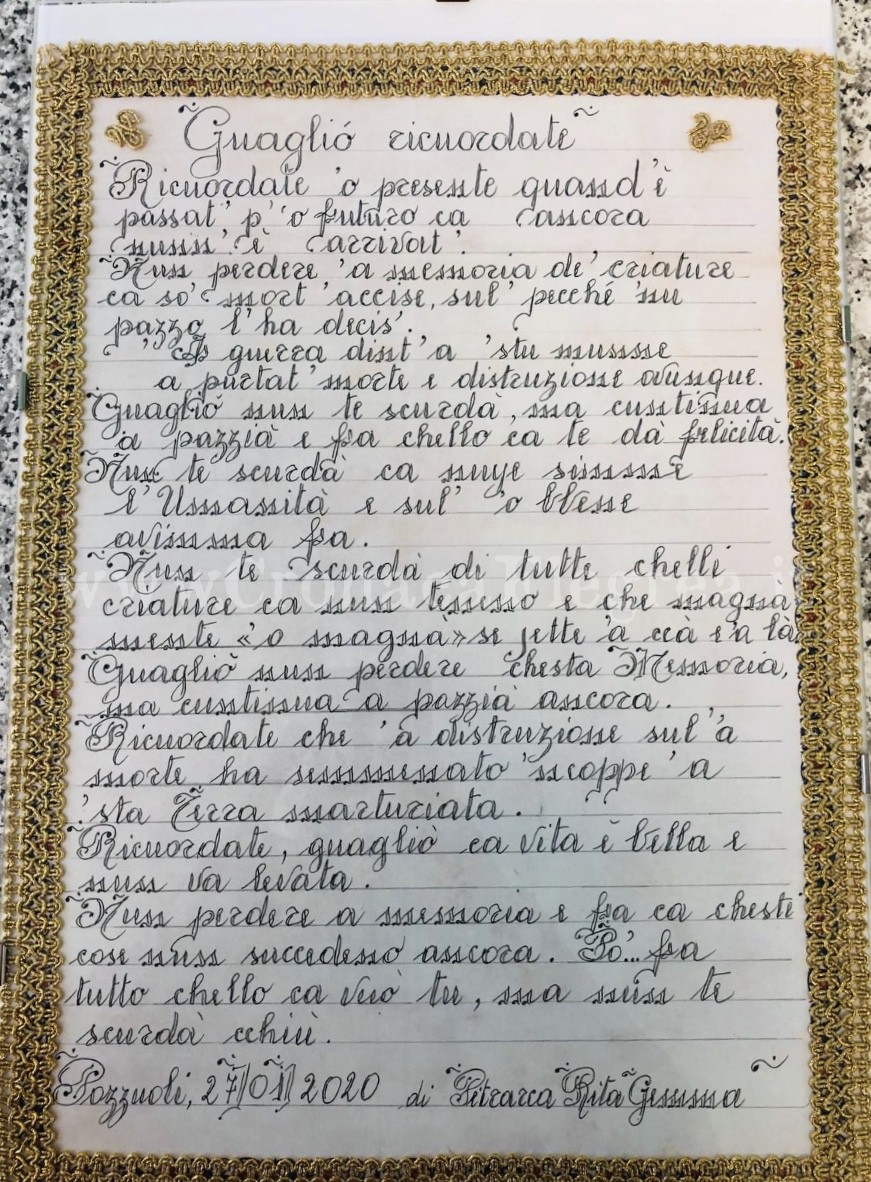 Guaglió ricuordate
Ricuordate 'o presente quand'è
passat' p' 'o futuro ca ancora
nunn' è arrivat'.
Nun perdere 'a memoria de' criature
ca so' mort 'accise, sul' pecché 'nu
pazzo l'ha decis'.
'A guerra dint'a 'stu munne
a purtat' morte e distruzione ovunque.
Guagliò nun te scurdà, ma cuntinua
a pazzià e fra chello ca te dà felicità.
Nun te scurdà ca nuye simme
l'Umanità e sul' 'o bbene
avimma fra.
Nun te scurdà di tutte chelli
criature ca nun teneno e che magnà
mente «'o magnà» se jette 'a ccà e 'a là
Guagliò nun perdere chesta Memoria,
ma cuntinua a pazzià ancora.
Ricuordate che 'a distruzione sul 'a
morte ha semmenato 'ncoppe 'a
'sta Terra marturiata.
Ricuordate, guagliò ca vita è bella e
nun va levata.
Nun perdere a memoria e fra ca cheste
cose nun succedeno ancora. Pò... fra
tutto chello ca vuò tu, ma nun te
scurdà cchiù.
Pozzuoli, 27/01/2020 di Petrarca Rita Gemma
www.CronacaFlegrea.it